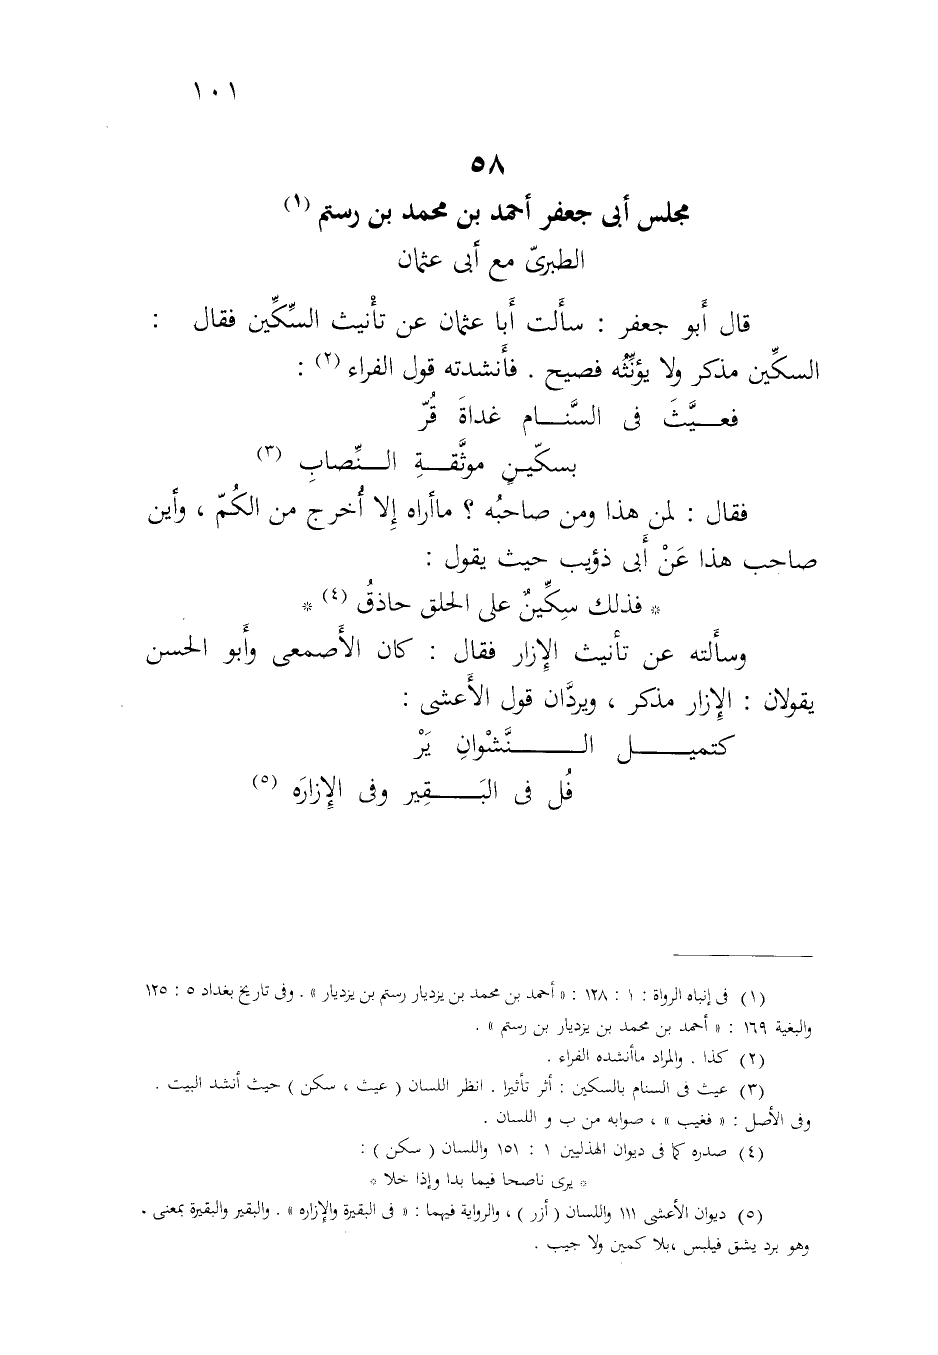 ١٠١
٥٨
مجلس أبى جعفر أحمد بن محمد بن رستم (١)
الطبرىّ مع أبى عثمان
قال أَبو جعفر : سأَلت أَبا عثمان عن تأْنيث السِّكِّين فقال :
السكِّين مذكر ولا يؤنِّثُه فصيح . فأَنشدته قول الفراء (٢) :
فعـيَّثَ فى السَّنـام غداةَ قُرّ
بسكّينٍ موثَّقـةِ النِّصابِ (٣)
فقال : لمن هذا ومن صاحبُه ؟ ماأراه إِلا أُخرج من الكُمّ ، وأَين
صاحب هذا عَنْ أَبى ذؤيب حيث يقول :
* فذلك سِكِّينٌ على الحلق حاذقُ (٤) *
وسأَلته عن تأنيث الإِزار فقال : كان الأَصمعى وأَبو الحسن
يقولان : الإِزار مذكر ، ويردَّان قول الأَعشى :
كتميـل النَّشْوانِ يَرْ
فُل فى البَـقِير وفى الإِزارَه (٥)
(١) فى إنباه الرواة : ١ : ١٢٨ : « أحمد بن محمد بن يزديار رستم بن يزديار » . وفى تاريخ بغداد ٥ : ١٢٥
والبغية ١٦٩ : « أحمد بن محمد بن يزديار بن رستم » .
(٢) كذا . والمراد ماأنشده الفراء .
(٣) عيث فى السنام بالسكين : أثر تأثيرا . انظر اللسان ( عيث ، سكن ) حيث أنشد البيت .
وفى الأصل : « فغيب » ، صوابه من ب و اللسان .
(٤) صدره كما فى ديوان الهذليين ١ : ١٥١ واللسان ( سكن ) :
* يرى ناصحا فيما بدا وإذا خلا *
(٥) ديوان الأعشى ١١١ واللسان ( أزر ) ، والرواية فيهما : « فى البقيرة والإزاره » . والبقير والبقيرة بمعنى .
وهو برد يشق فيلبس ،بلا كمين ولا جيب .